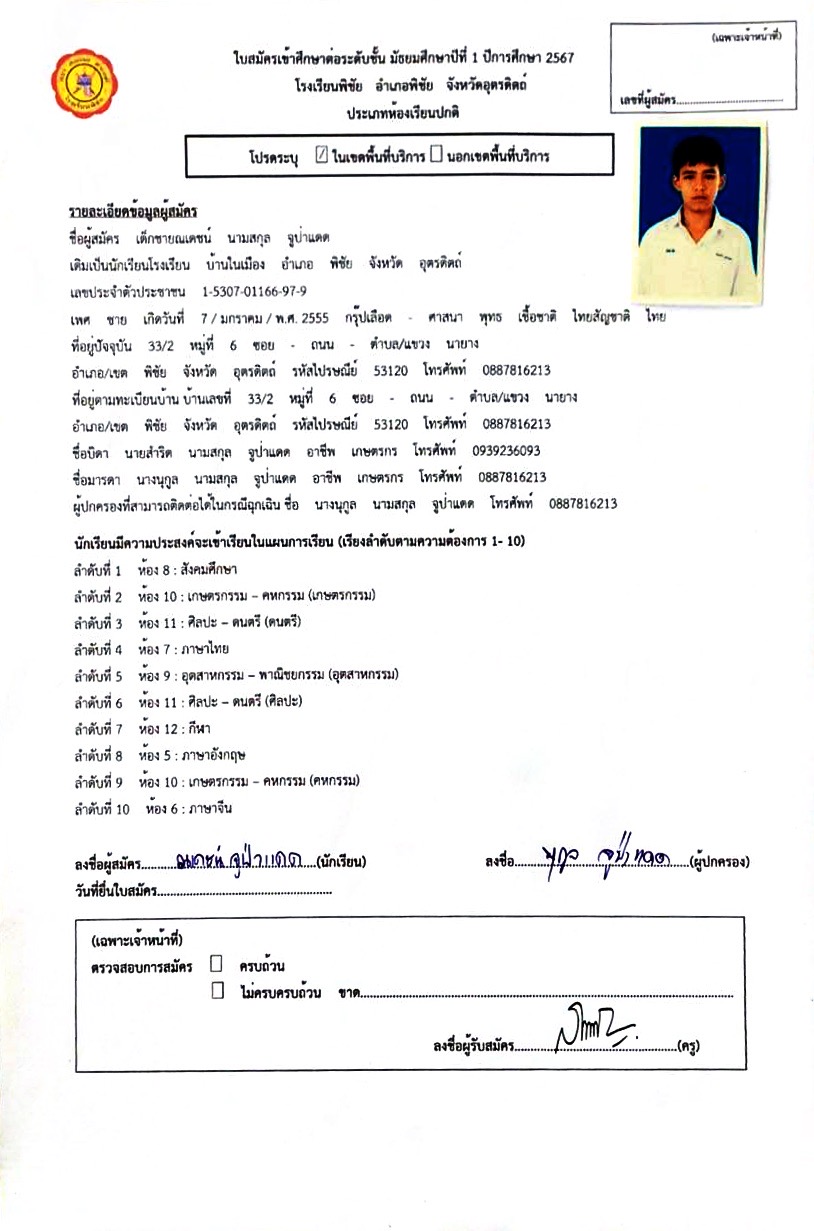 (เฉพาะเจ้าหน้าที่)
เลขที่ผู้สมัคร........................................
ใบสมัครเข้าศึกษาต่อระดับชั้น มัธยมศึกษาปีที่ 1 ปีการศึกษา 2567
โรงเรียนพิชัย อำเภอพิชัย จังหวัดอุตรดิตถ์
ประเภทห้องเรียนปกติ
โปรดระบุ ☑ ในเขตพื้นที่บริการ ☐ นอกเขตพื้นที่บริการ
รายละเอียดข้อมูลผู้สมัคร
ชื่อผู้สมัคร เด็กชายณเดชน์ นามสกุล จูป่าแดด
เดิมเป็นนักเรียนโรงเรียน บ้านในเมือง อำเภอ พิชัย จังหวัด อุตรดิตถ์
เลขประจำตัวประชาชน 1-5307-01166-97-9
เพศ ชาย เกิดวันที่ 7 / มกราคม / พ.ศ. 2555 กรุ๊ปเลือด - ศาสนา พุทธ เชื้อชาติ ไทยสัญชาติ ไทย
ที่อยู่ปัจจุบัน 33/2 หมู่ที่ 6 ซอย - ถนน - ตำบล/แขวง นายาง
อำเภอ/เขต พิชัย จังหวัด อุตรดิตถ์ รหัสไปรษณีย์ 53120 โทรศัพท์ 0887816213
ที่อยู่ตามทะเบียนบ้าน บ้านเลขที่ 33/2 หมู่ที่ 6 ซอย - ถนน - ตำบล/แขวง นายาง
อำเภอ/เขต พิชัย จังหวัด อุตรดิตถ์ รหัสไปรษณีย์ 53120 โทรศัพท์ 0887816213
ชื่อบิดา นายสำริด นามสกุล จูป่าแดด อาชีพ เกษตรกร โทรศัพท์ 0939236093
ชื่อมารดา นางนุกูล นามสกุล จูป่าแดด อาชีพ เกษตรกร โทรศัพท์ 0887816213
ผู้ปกครองที่สามารถติดต่อได้ในกรณีฉุกเฉิน ชื่อ นางนุกูล นามสกุล จูป่าแดด โทรศัพท์ 0887816213
นักเรียนมีความประสงค์จะเข้าเรียนในแผนการเรียน (เรียงลำดับตามความต้องการ 1- 10)
ลำดับที่ 1 ห้อง 8 : สังคมศึกษา
ลำดับที่ 2 ห้อง 10 : เกษตรกรรม – คหกรรม (เกษตรกรรม)
ลำดับที่ 3 ห้อง 11 : ศิลปะ – ดนตรี (ดนตรี)
ลำดับที่ 4 ห้อง 7 : ภาษาไทย
ลำดับที่ 5 ห้อง 9 : อุตสาหกรรม – พาณิชยกรรม (อุตสาหกรรม)
ลำดับที่ 6 ห้อง 11 : ศิลปะ – ดนตรี (ศิลปะ)
ลำดับที่ 7 ห้อง 12 : กีฬา
ลำดับที่ 8 ห้อง 5 : ภาษาอังกฤษ
ลำดับที่ 9 ห้อง 10 : เกษตรกรรม – คหกรรม (คหกรรม)
ลำดับที่ 10 ห้อง 6 : ภาษาจีน
ลงชื่อผู้สมัคร.........ณเดชน์ จูป่าแดด....(นักเรียน) ลงชื่อ........นุกูล จูป่าแดด....(ผู้ปกครอง)
วันที่ยื่นใบสมัคร..................................................
(เฉพาะเจ้าหน้าที่)
ตรวจสอบการสมัคร ☐ ครบถ้วน
☐ ไม่ครบครบถ้วน ขาด................................................................
ลงชื่อผู้รับสมัคร..............................................(ครู)